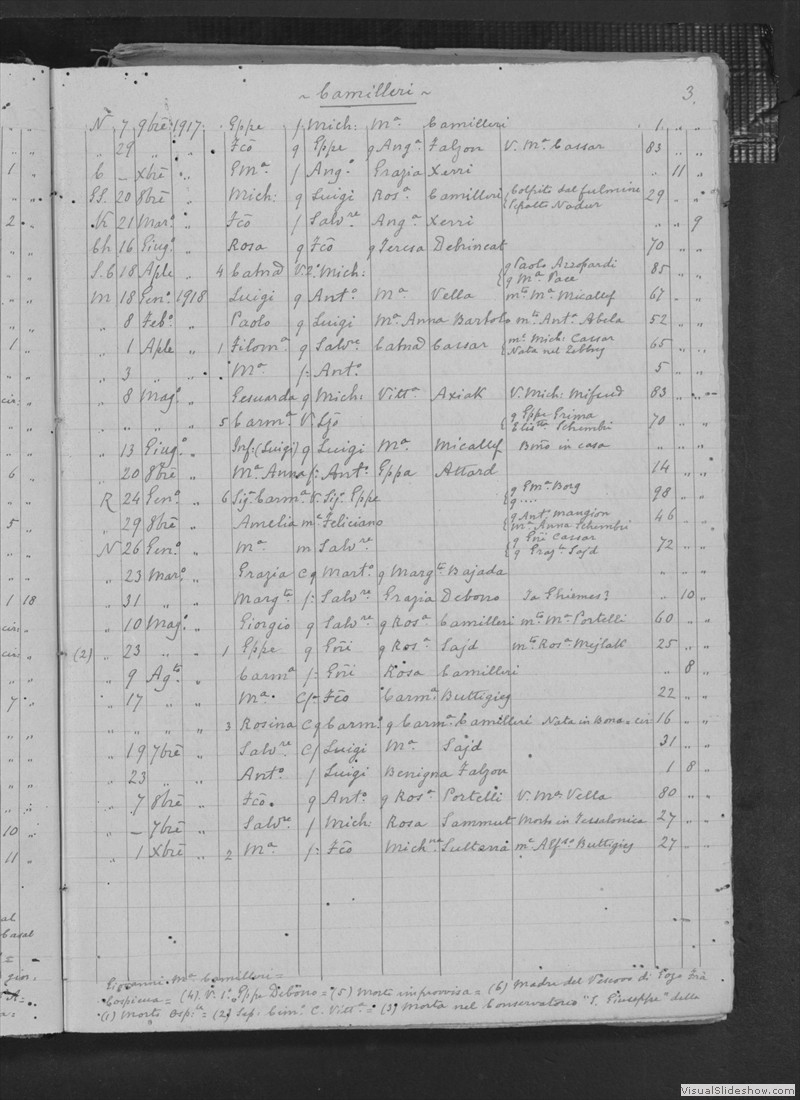 ~ Camilleri ~ 3.
N 7 9bre 1917 Eppe f Mich: Ma Camilleri 1 „ „
„ 29 „ „ Fcõ q Eppe q Anga Falzon V. Ma Cassar 83 „ „
C – Xbre „ Gma f Ango Grazia Xerri „ 11 „
SS. 20 8bre „ Mich: q Luigi Rosa Camilleri Colpito dal fulmine Sepolto Nadur 29 „ „
K 21 Maro „ Fcõ f Salvre Anga Xerri „ „ 9
Ch 16 Giugo „ Rosa q Fcõ q Teresa Debrincat 70 „ „
S.C 18 Aple „ 4 Catnã V. 2o Mich: q Paolo Azzopardi q Ma Pace 85 „ „
M 18 Geno 1918 Luigi q Anto Ma Vella mto Ma Micallef 67 „ „
„ 8 Febo „ Paolo q Luigi Ma Anna Bartolo mto Anta Abela 52 „ „
1 „ „ 1 Aple „ 1 Filoma q Salvre Catnã Cassar ma Mich: Cassar Nata nel Zebbug 65 „ „
„ 3 „ „ Ma f: Anto 5 „ „
„ 8 Mago „ Geuarda q Mich: Vitta Axiak V. Mich: Mifsud 83 „ „
„ „ „ „ 5 Carma V. Ljõ q Eppe Grima Elista Schembri 70 „ „
„ 13 Giugo „ Inf: (Luigi) q Luigi Ma Micallef Bmõ in casa „ „ „
6 „ „ 20 8bre „ Ma Anna f: Anto Eppa Attard 14 „ „
R 24 Geno „ 6 Siga Carma V. Sigr Eppe q Gma Borg q .... 98 „ „
5 „ „ 29 8bre „ Amelia ma Feliciano q Anto Mangion ma Anna Schembri 46 „ „
N 26 Geno „ Ma m Salvre q Gñi Cassar q Graza Sajd 72 „ „
„ 23 Maro „ Grazia C q Marto q Margta Bajada „ „ „
1 18 „ 31 „ „ Margta f: Salvre Grazia Debono „ 10 „
„ 10 Mago „ Giorgio q Salvre q Rosa Camilleri mto Ma Portelli 60 „ „
(2) „ 23 „ „ 1 Eppe q Gñi q Rosa Sajd mto Rosa Mejlak 25 „ „
„ 9 Agto „ Carma f: Gñi Rosa Camilleri „ 8 „
7 „ „ 17 „ „ Ma C f: Fcõ Carma Buttigieg 22 „ „
„ „ „ „ 3 Rosina C q Carmo q Carma Camilleri Nata in Bona = cir 16 „ „
„ 19 7bre „ Salvre C f Luigi Ma Sajd 31 „ „
„ 23 „ „ Anto f Luigi Benigna Falzon 1 8 „
„ 7 8bre „ Fcõ q Anto q Rosa Portelli V. Ma Vella 80 „ „
10 „ „ – 7bre „ Salvre f Mich: Rosa Sammut Morto in Tessalonica 27 „ „
11 „ „ 1 Xbre „ 2 Ma f: Fcõ Michna ma Alfdo Buttigieg 27 „ „
Giovanni Ma Camilleri =
Cospicua = (4) V. 1o Eppe Debono = (5) Morte improvvisa = (6) Madre del Vescovo di Gozo Frà
(1) Morti Ospe = (2) Sep. Cimo C. Vitta = (3) Morta nel Conservatorio "S. Giuseppe" della